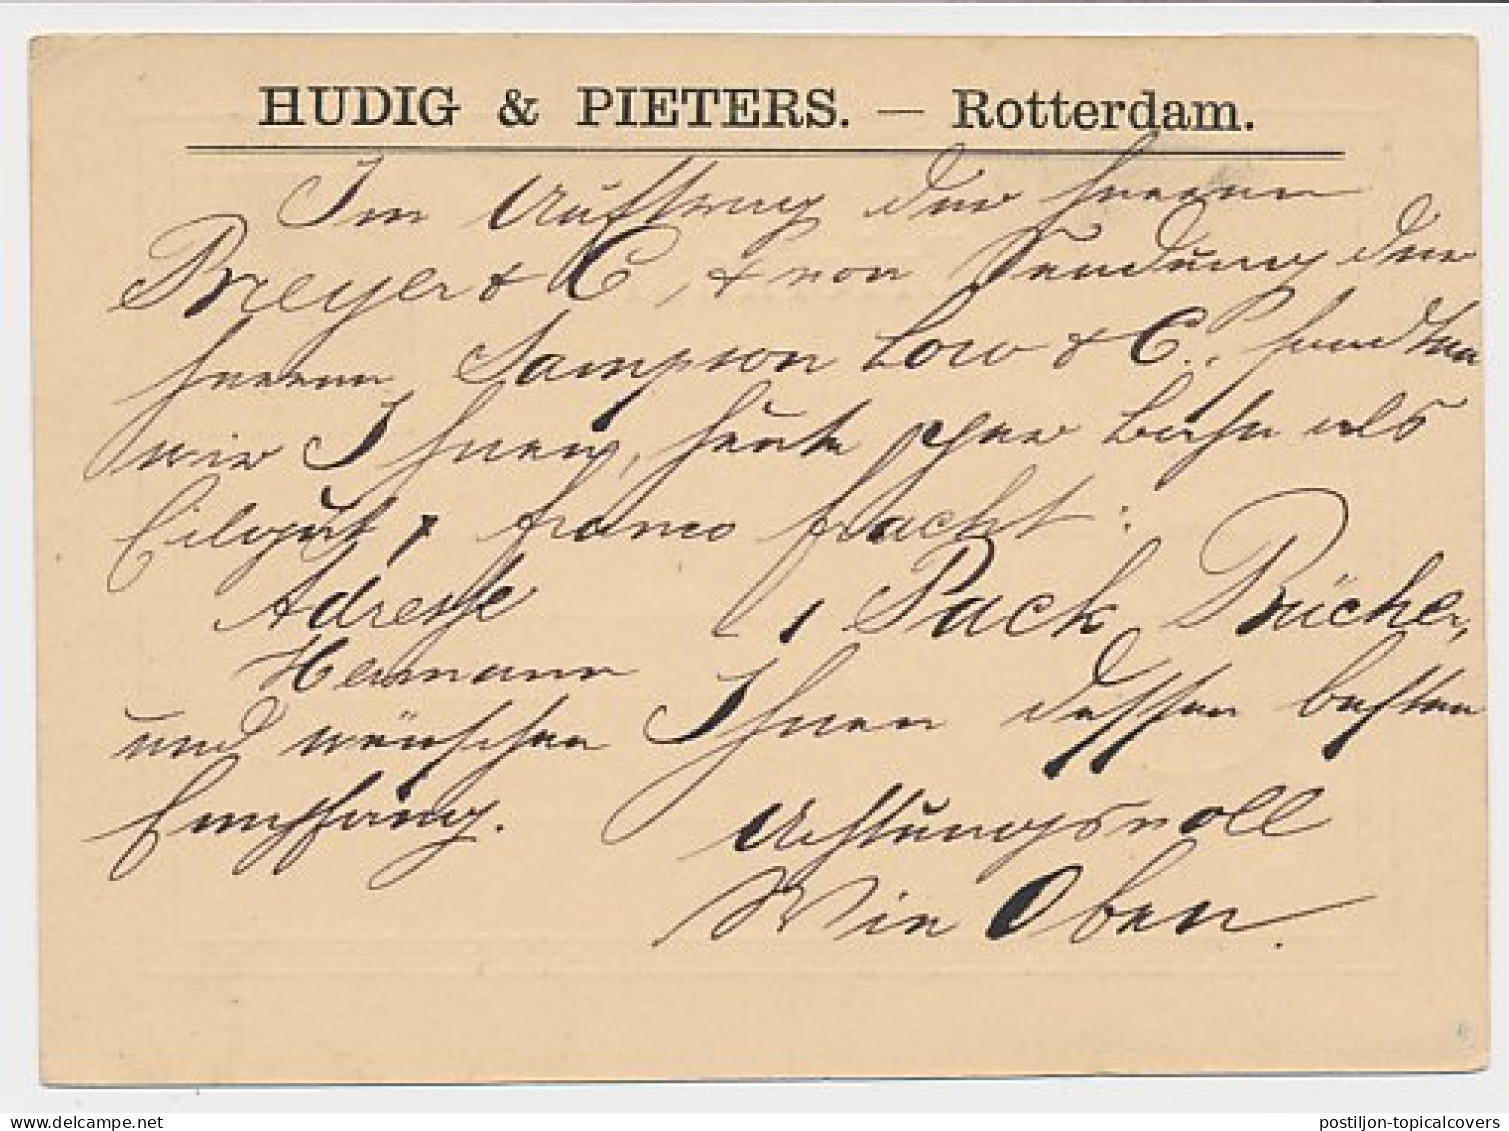 HUDIG & PIETERS. — Rotterdam.
Im Auftrag der Herren
Breyer & C, & von Sendung der
Herren Sampson Low & C°, sandten
wir Ihnen, heute per Bahn als
Eilgut, franco Fracht:
Adresse 1 Pack Bücher,
Hermann
und wünschen Ihnen dessen besten
Empfang. Achtungsvoll
Wie Oben.
delcampe.net
postiljon-topicalcovers